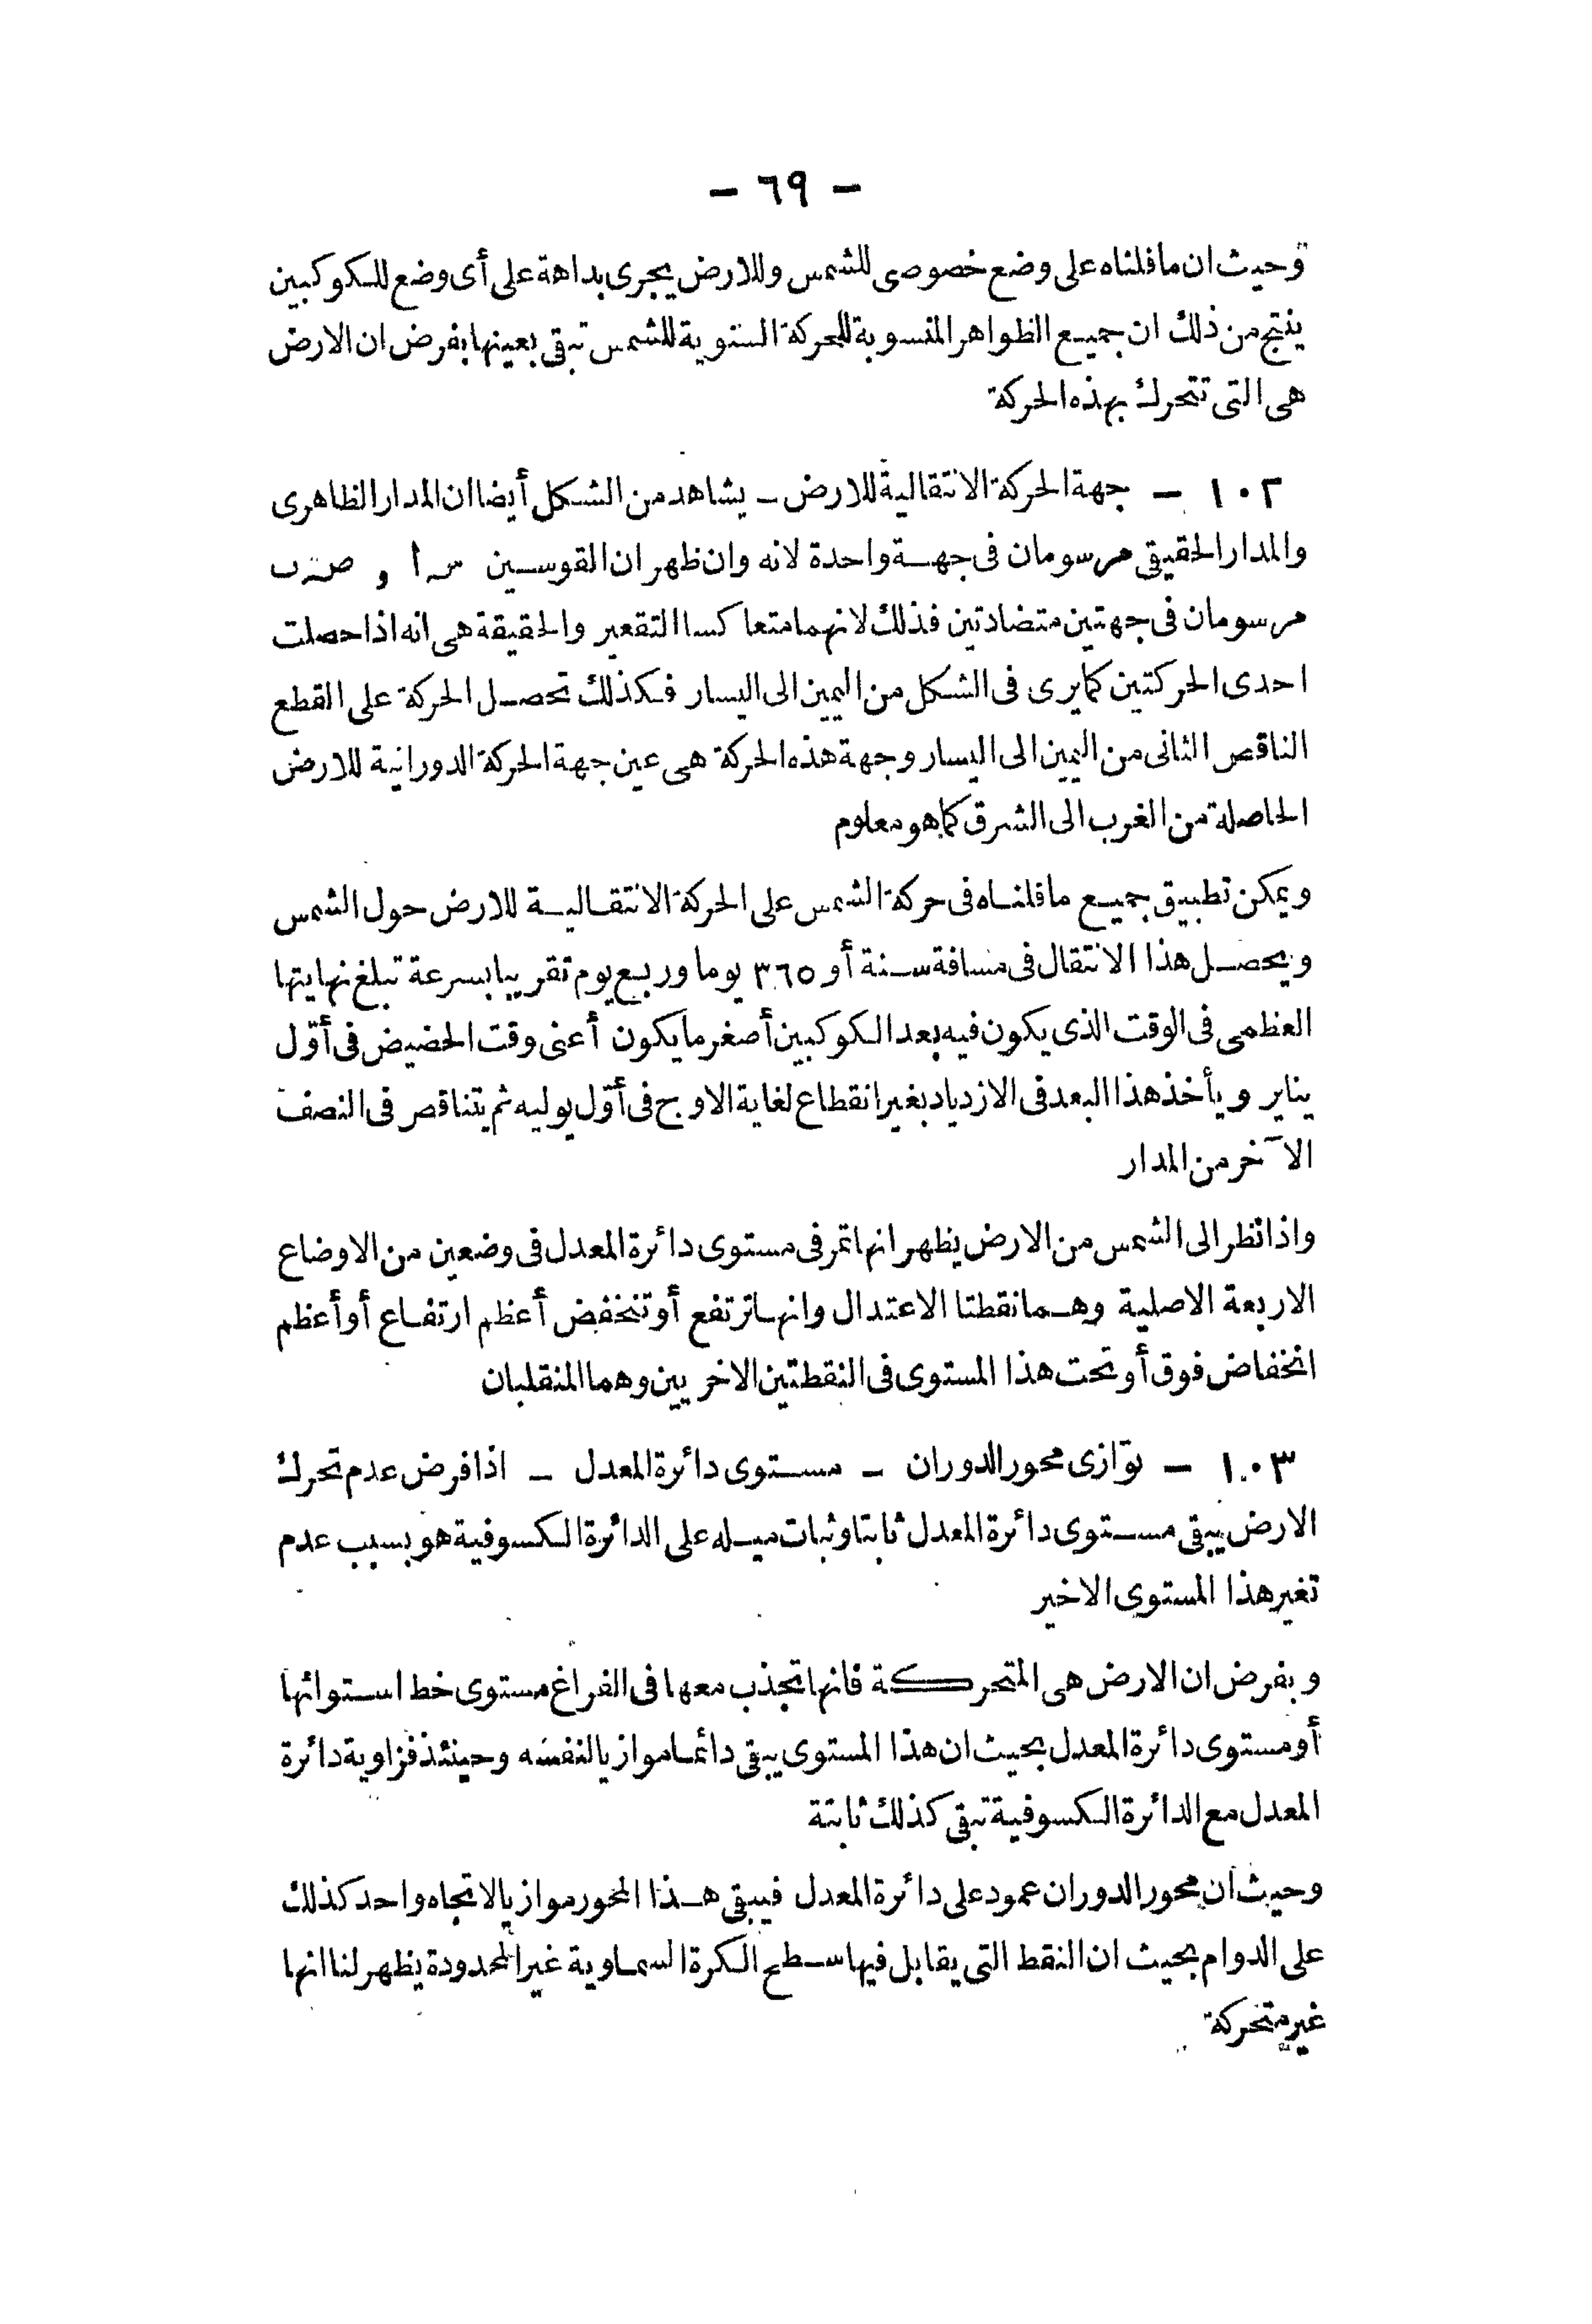 — ٦٩ —
وحيث ان ما قلناه على وضع خصوصى للشمس وللارض يجرى بداهة على أى وضع للكوكبين
ينتج من ذلك ان جميع الظواهر المنسوبة للحركة السنوية للشمس تبقى بعينها بفرض ان الارض
هى التى تتحرك بهذه الحركة
١٠٢ — جهة الحركة الانتقالية للارض — يشاهد من الشكل أيضا ان المدار الظاهرى
والمدار الحقيقى مرسومان فى جهة واحدة لانه وان ظهر ان القوسين سَ ا و صَ ب
مرسومان فى جهتين متضادتين فذلك لانهما متعاكسا التقعير والحقيقة هى انه اذا حصلت
احدى الحركتين كما يرى فى الشكل من اليمين الى اليسار فكذلك تحصل الحركة على القطع
الناقص الثانى من اليمين الى اليسار وجهة هذه الحركة هى عين جهة الحركة الدورانية للارض
الحاصلة من الغرب الى الشرق كما هو معلوم
ويمكن تطبيق جميع ما قلناه فى حركة الشمس على الحركة الانتقالية للارض حول الشمس
ويحصل هذا الانتقال فى مسافة سنة أو ٣٦٥ يوما وربع يوم تقريبا بسرعة تبلغ نهايتها
العظمى فى الوقت الذى يكون فيه بعد الكوكبين أصغر ما يكون أعنى وقت الحضيض فى أوّل
يناير ويأخذ هذا البعد فى الازدياد بغير انقطاع لغاية الاوج فى أوّل يوليه ثم يتناقص فى النصف
الآخر من المدار
واذا نظر الى الشمس من الارض يظهر انها تمر فى مستوى دائرة المعدل فى وضعين من الاوضاع
الاربعة الاصلية وهما نقطتا الاعتدال وانها ترتفع أو تنخفض أعظم ارتفاع أو أعظم
انخفاض فوق أو تحت هذا المستوى فى النقطتين الاخريين وهما المنقلبان
١٠٣ — توازى محور الدوران — مستوى دائرة المعدل — اذا فرض عدم تحرك
الارض يبقى مستوى دائرة المعدل ثابتا وثبات ميله على الدائرة الكسوفية هو بسبب عدم
تغير هذا المستوى الاخير
وبفرض ان الارض هى المتحركة فانها تجذب معها فى الفراغ مستوى خط استوائها
أو مستوى دائرة المعدل بحيث ان هذا المستوى يبقى دائما موازيا لنفسه وحينئذ فزاوية دائرة
المعدل مع الدائرة الكسوفية تبقى كذلك ثابتة
وحيث ان محور الدوران عمود على دائرة المعدل فيبقى هذا المحور موازيا لاتجاه واحد كذلك
على الدوام بحيث ان النقط التى يقابل فيها سطح الكرة السماوية غير المحدودة يظهر لنا انها
غير متحركة